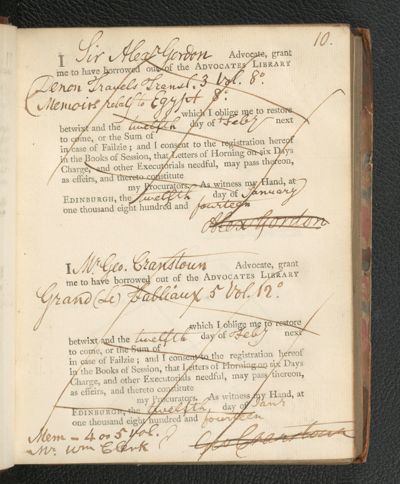 10.
I Sir Alexr Gordon Advocate, grant
me to have borrowed out of the ADVOCATES LIBRARY
Denon Travels Transl. 3 Vol. 8o.
Memoirs relatg to Egypt 8o.
which I oblige me to restore
betwixt and the twelfth day of Feby next
to come, or the Sum of
in case of Failzie; and I consent to the registration hereof
in the Books of Session, that Letters of Horning on six Days
Charge, and other Executorials needful, may pass thereon,
as effeirs, and thereto constitute
my Procurators. As witness my Hand, at
EDINBURGH, the twelfth day of January
one thousand eight hundred and fourteen
Alexr Gordon
I Mr Geo. Cranstoun Advocate, grant
me to have borrowed out of the ADVOCATES LIBRARY
Grand (Le) Fabliaux 5 Vol. 12o.
which I oblige me to restore
betwixt and the twelfth day of Feby next
to come, or the Sum of
in case of Failzie; and I consent to the registration hereof
in the Books of Session, that Letters of Horning on six Days
Charge, and other Executorials needful, may pass thereon,
as effeirs, and thereto constitute
my Procurators. As witness my Hand, at
EDINBURGH, the twelfth day of Jany
one thousand eight hundred and fourteen
Mem - 4 or 5 Vol.
Mr. Wm Clerk Geo Cranstoun